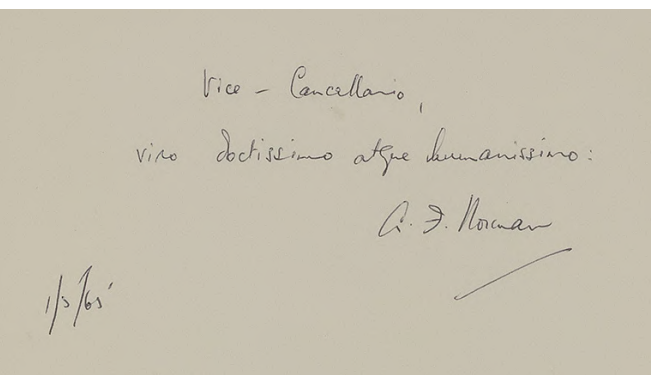 Vice - Cancellario,
viro doctissimo atque humanissimo:
A. F. Norman
1/3/65